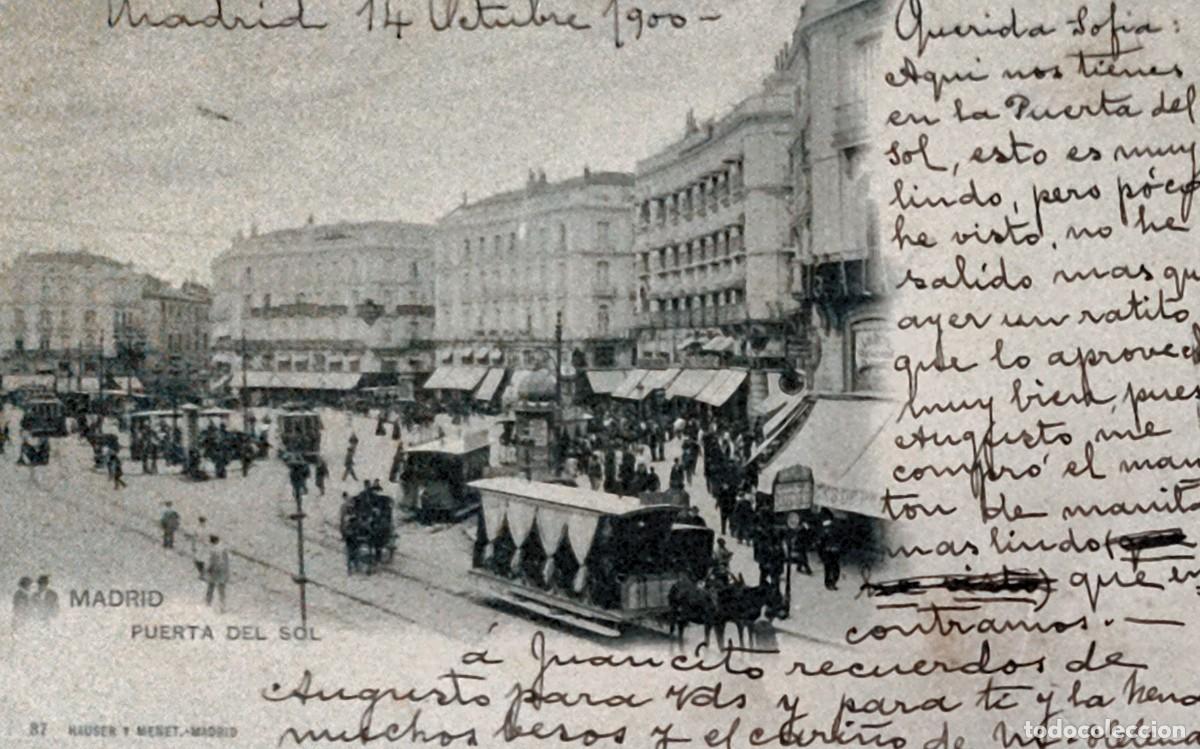 Madrid 14 Octubre 1900-
Querida Sofia:
Aqui nos tienes
en la Puerta del
Sol, esto es muy
lindo, pero póco
he visto, no he
salido mas qu
ayer un ratito
que lo aprovec
muy bien, pues
Augusto me
compró el man
ton de manil
mas lindo
que en
contramos.-
á Juancito recuerdos de
Augusto para Vds y para ti y la Nena
muchos besos y el cariño de
MADRID
PUERTA DEL SOL
87 HAUSER Y MENET.-MADRID
todocoleccion